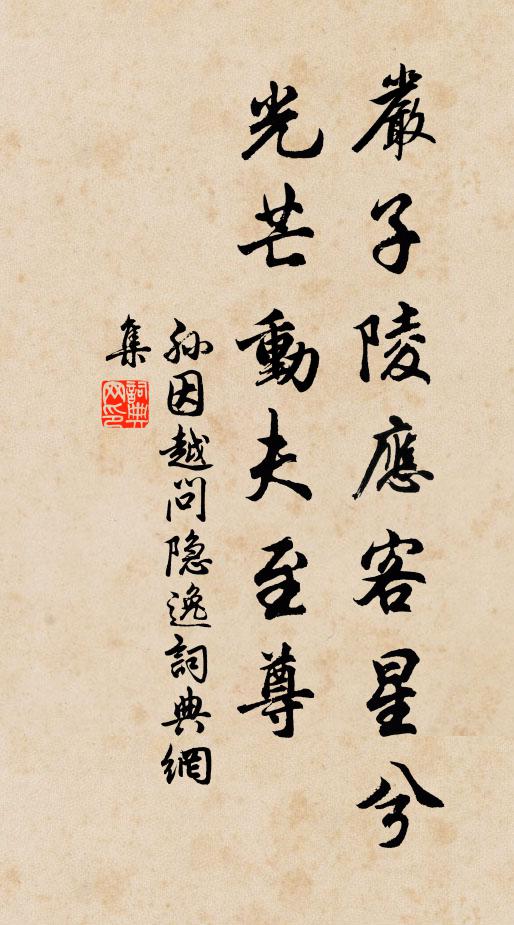 嚴子陵應客星兮
光芒動夫至尊
孙因越问隐逸詞典網
集
詞典
网印